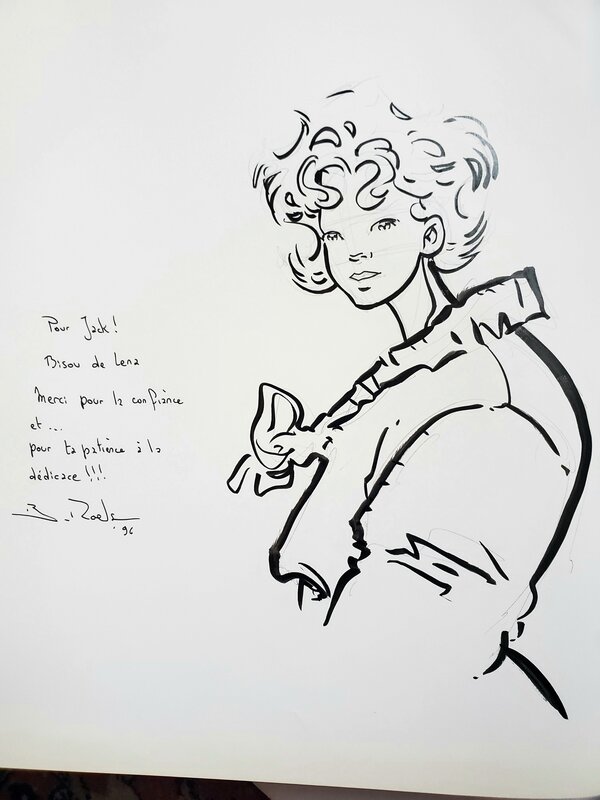 Pour Jack !
Bisou de Lena
Merci pour la confiance
et ...
pour ta patience à la
dédicace !!!
B. Roels
'96